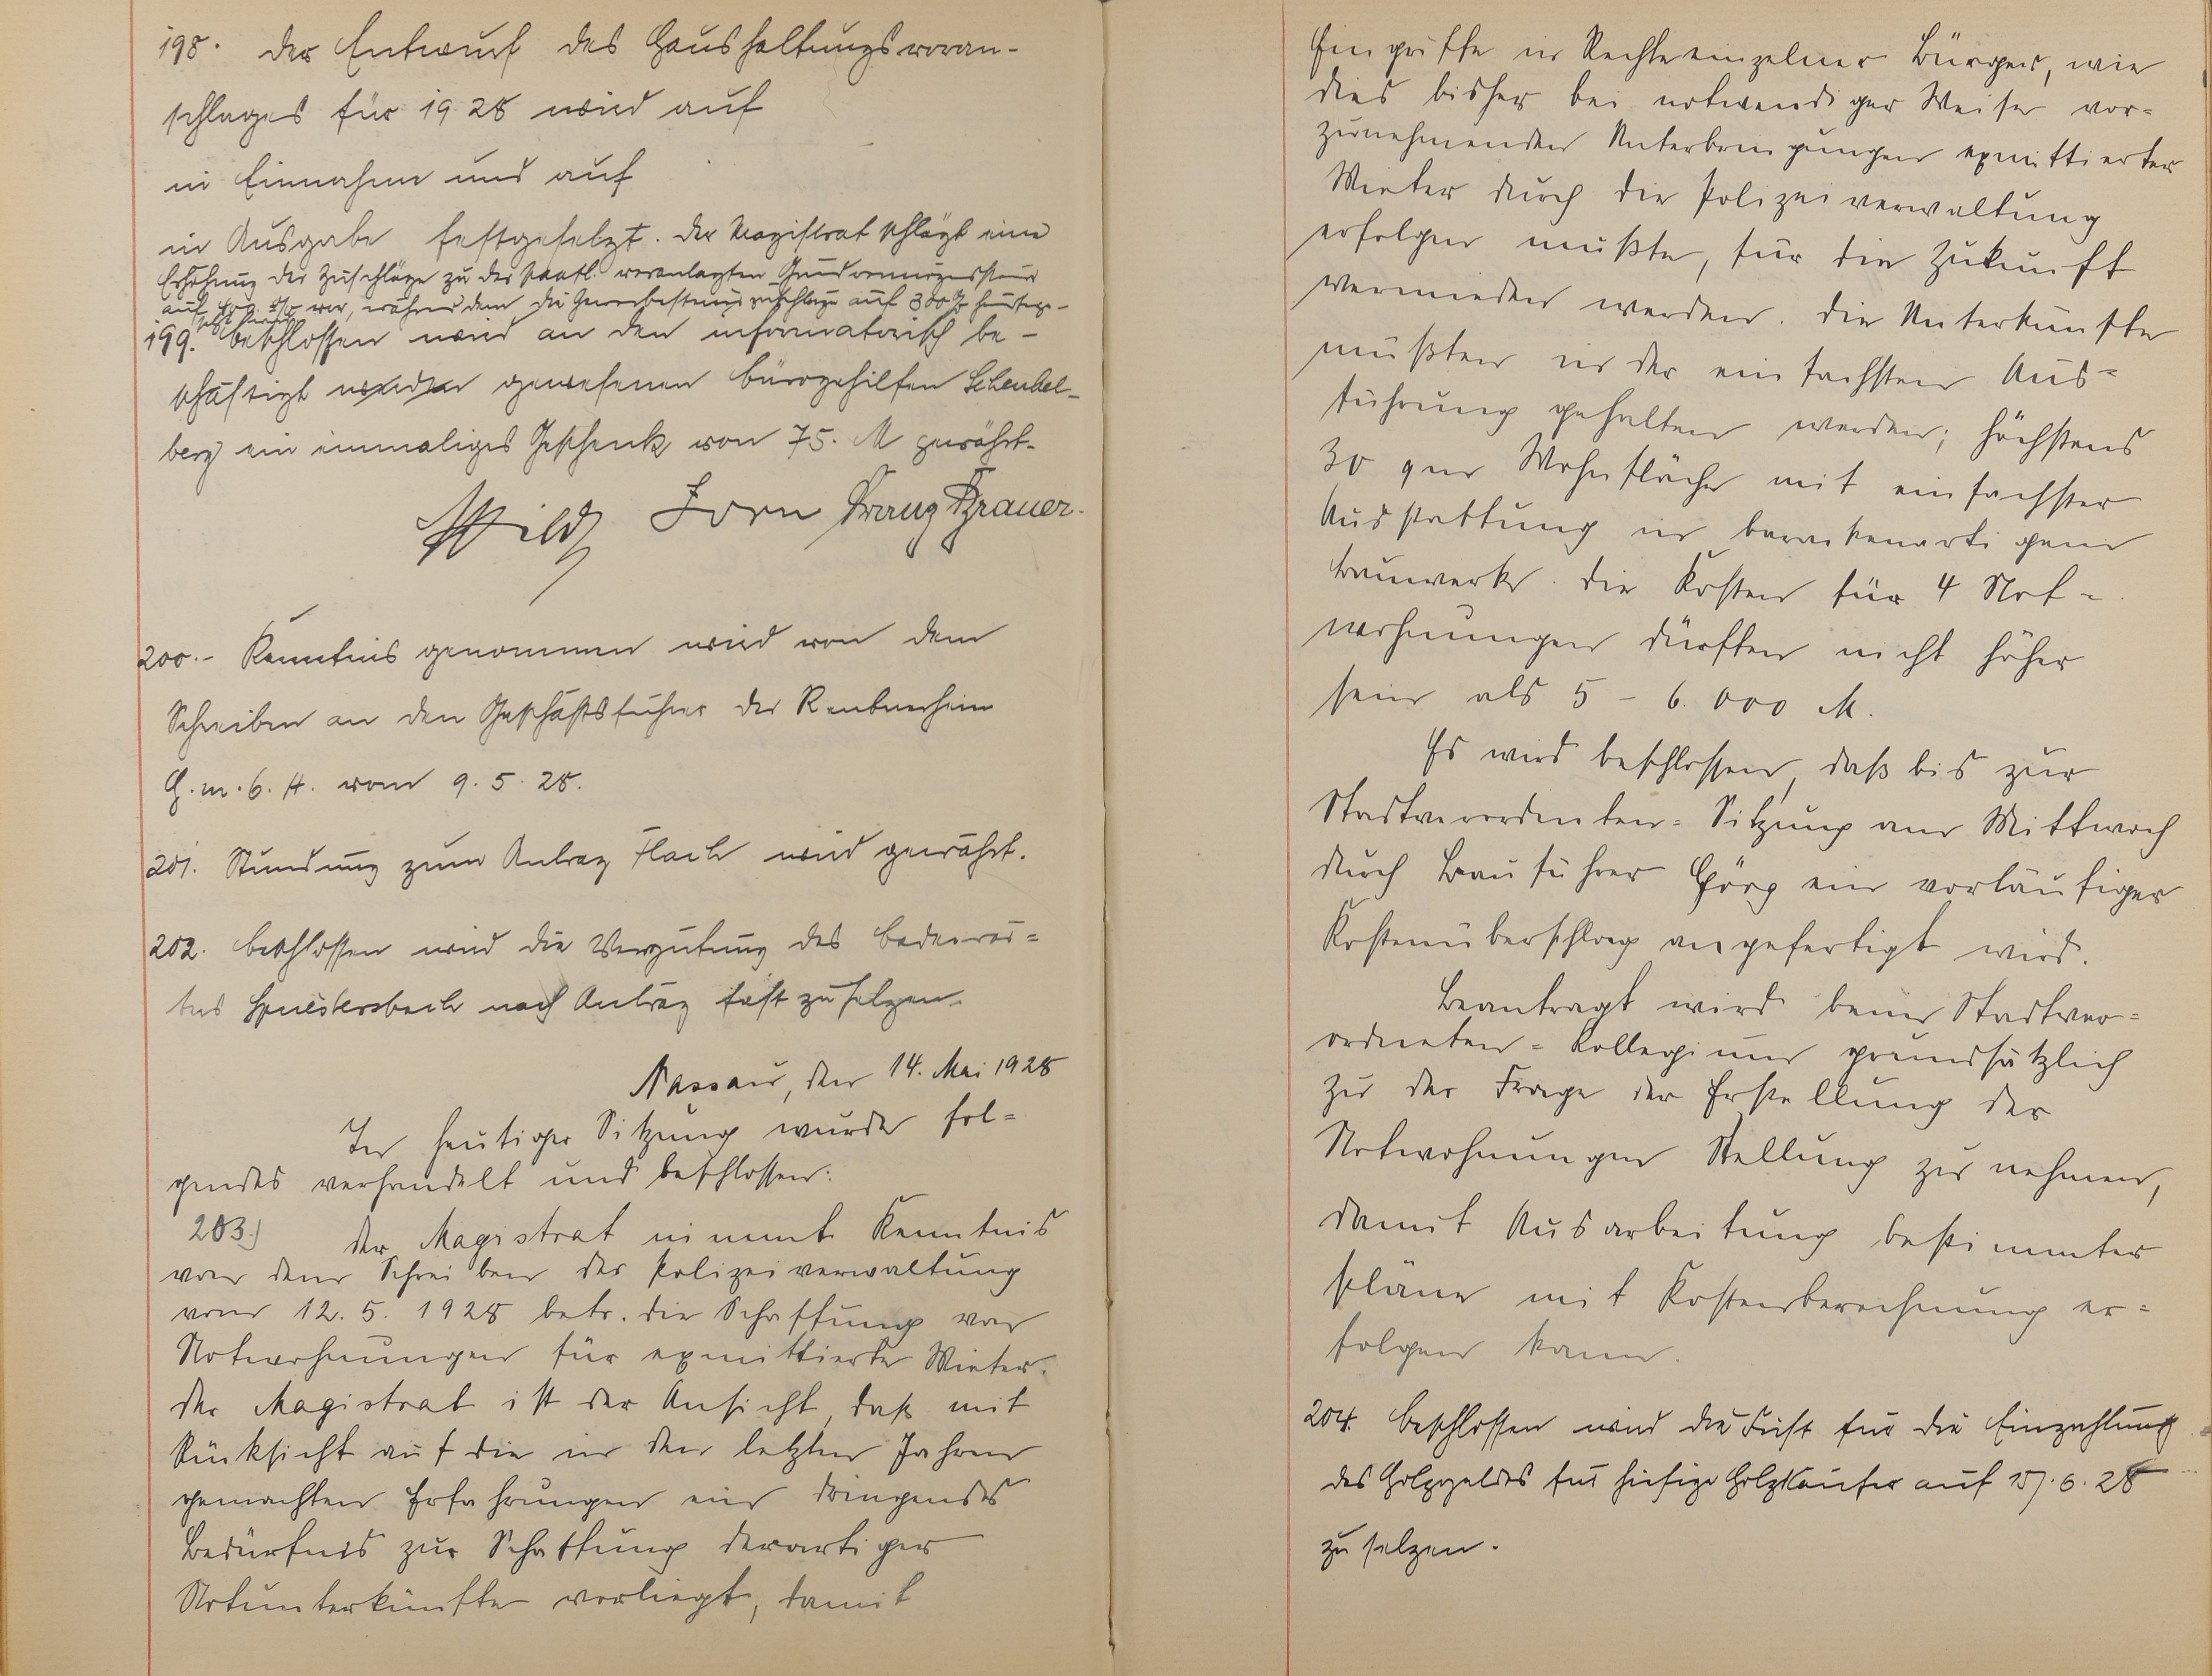 198. Der Entwurf des Haushaltungsvoran-
schlages für 1928 wird auf
in Einnahme und auf
in Ausgabe festgesetzt. Der Magistrat schlägt eine
Erhöhung der Zuschläge zu der staatl. veranlagten Grundvermögenssteuer
auf vor, während dem die Gewerbesteuerzuschläge auf 300 %
199. Beschlossen wird an den informatorisch be-
schäftigt gewesenen Bürogehilfen Scheubel-
berg ein einmaliges Geschenk von 75. M gewährt.
Wild Jorn Franz Brauer.
200.- Kenntnis genommen wird von dem
Schreiben an den Geschäftsführer der Rentnerheim
G.m.b.H. vom 9.5.28.
201. Stundung zum Antrag Flach wird gewährt.
202. Beschlossen wird die Vergütung des
nach Antrag fest zu setzen.
Nassau, den 14. Mai 1928
In heutiger Sitzung wurde fol-
gendes verhandelt und beschlossen:
203.) Der Magistrat nimmt Kenntnis
von dem Schreiben der Polizeiverwaltung
vom 12.5.1928 betr. die Schaffung von
Notwohnungen für exmittierte Mieter.
Der Magistrat ist der Ansicht, daß mit
Rücksicht auf die in den letzten Jahren
gemachten Erfahrungen ein dringendes
Bedürfnis zur Schaffung derartiger
Notunterkünfte vorliegt, damit
Eingriffe in Rechte einzelner Bürger, wie
dies bisher bei notwendiger Weise vor-
zunehmenden Unterbringungen exmittierter
Mieter durch die Polizeiverwaltung
erfolgen mußte, für die Zukunft
vermieden werden. Die Unterkünfte
müßten in der einfachsten Aus-
führung gehalten werden; höchstens
30 qm Wohnfläche mit einfachster
Ausstattung in barackenartigem
Bauwerk. Die Kosten für 4 Not-
wohnungen dürften nicht höher
sein als 5 - 6.000 M.
Es wird beschlossen, daß bis zur
Stadtverordneten-Sitzung am Mittwoch
durch Bauführer Görg ein vorläufiger
Kostenüberschlag angefertigt wird.
Beantragt wird beim Stadtver-
ordneten-Kollegium grundsätzlich
zu der Frage der Erstellung der
Notwohnungen Stellung zu nehmen,
damit Ausarbeitung bestimmter
Pläne mit Kostenberechnung er-
folgen kann.
204. Beschlossen wird die Frist für die Einzahlung
des Holzgeldes für hiesige Holzkäufer auf 15.6.28
zu setzen.